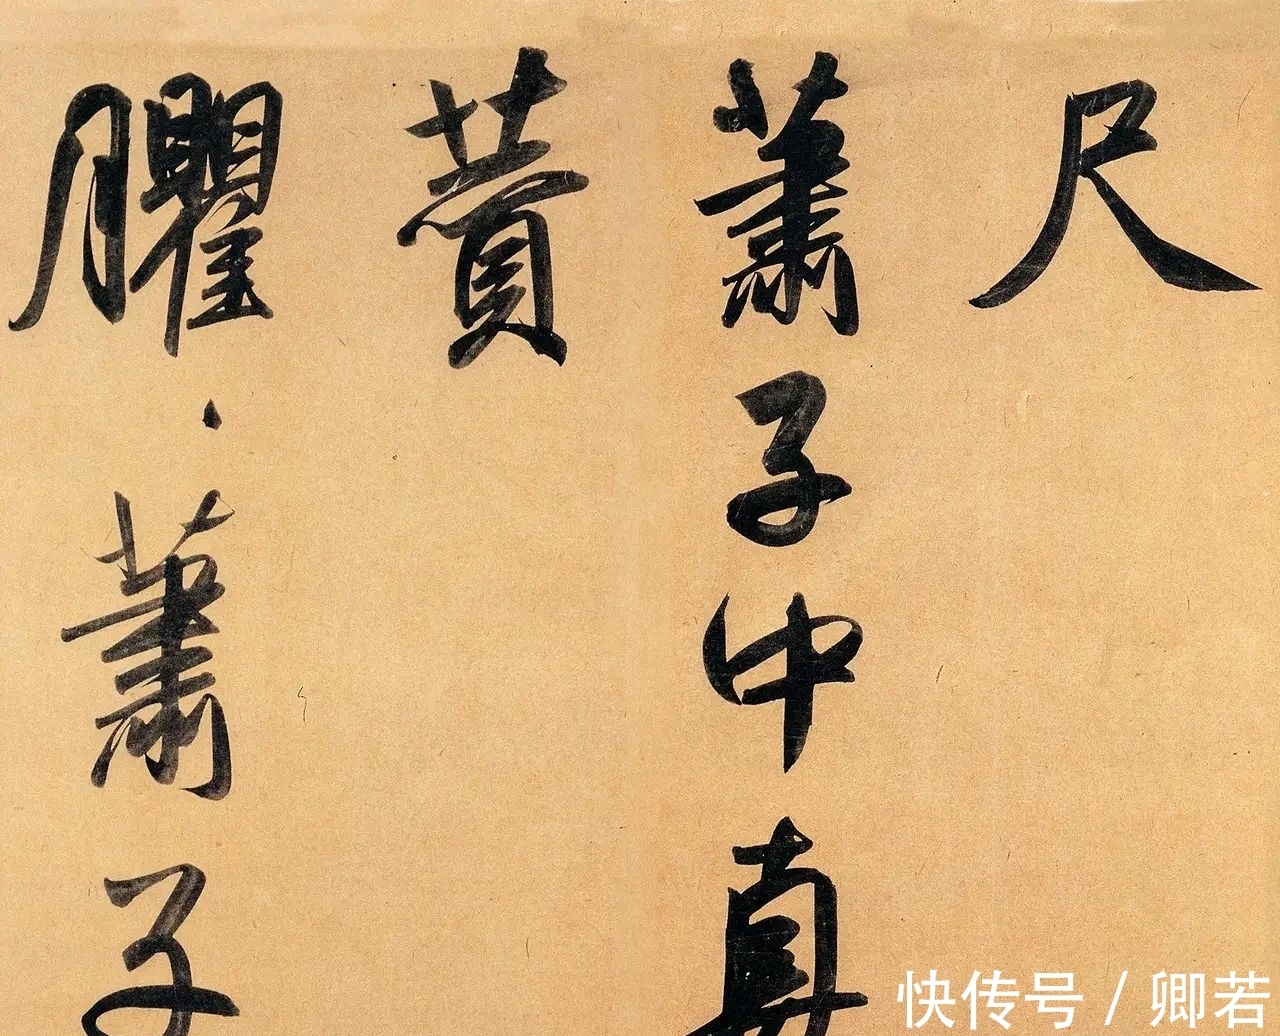 尺
蕭子中真
贊
臞、蕭子
快传号 / 卿若